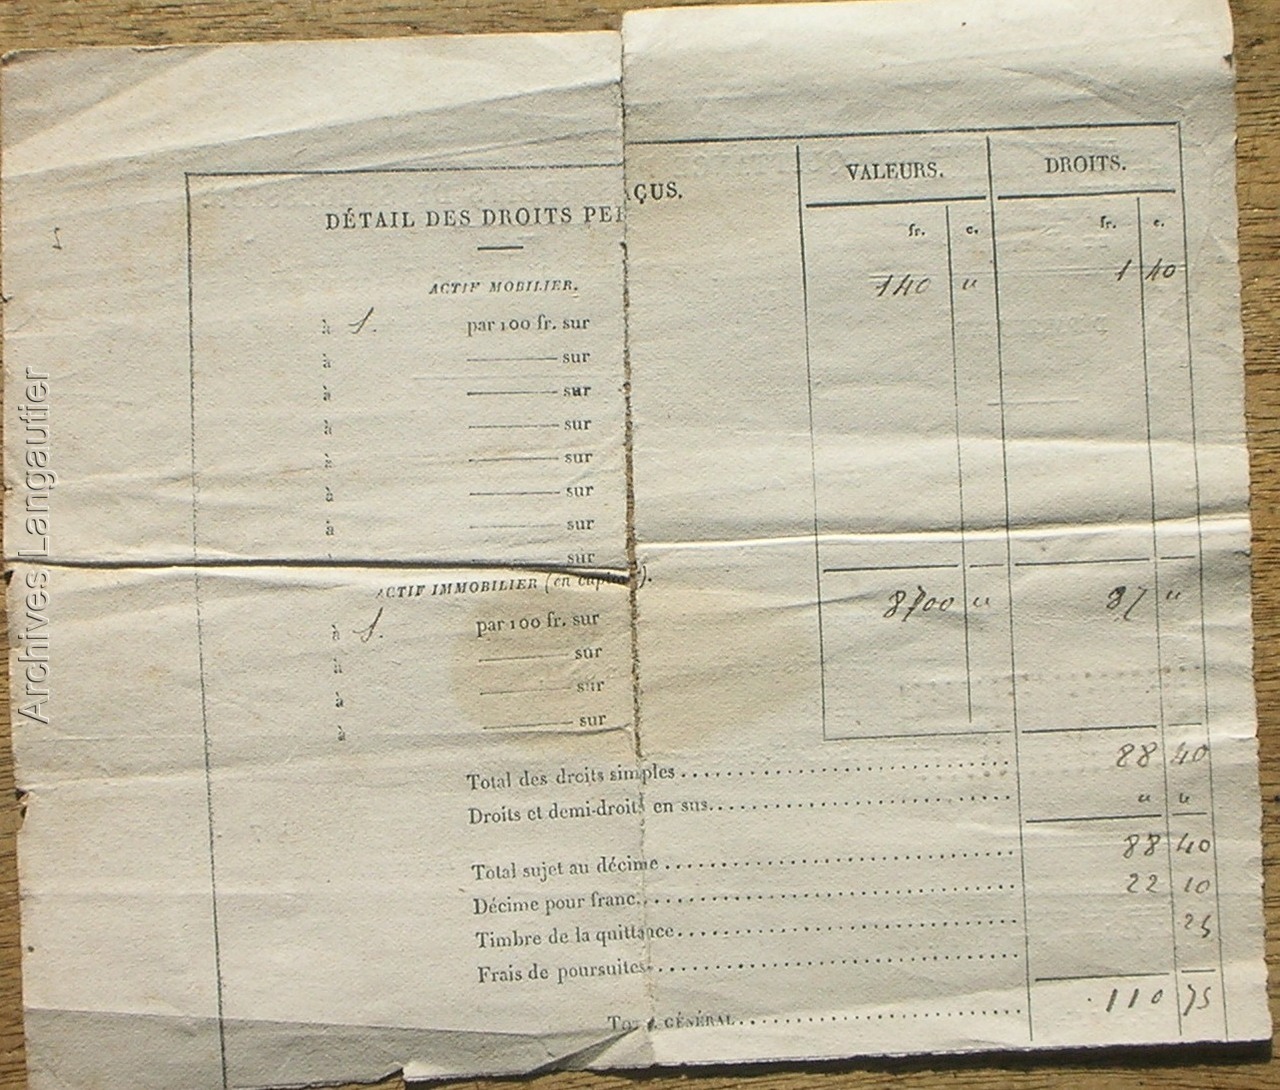 VALEURS. DROITS.
DÉTAIL DES DROITS PERÇUS.
fr. c. fr. c.
ACTIF MOBILIER. 140 " 1 40
à 1. par 100 fr. sur
à sur
à sur
à sur
à sur
à sur
à sur
sur
ACTIF IMMOBILIER (en capital). 8700 " 87 "
à 1. par 100 fr. sur
à sur
à sur
à sur
Total des droits simples 88 40
Droits et demi-droits en sus " "
Total sujet au décime 88 40
Décime pour franc 22 10
Timbre de la quittance 25
Frais de poursuites
TOTAL GÉNÉRAL 110 75
Archives Langautier